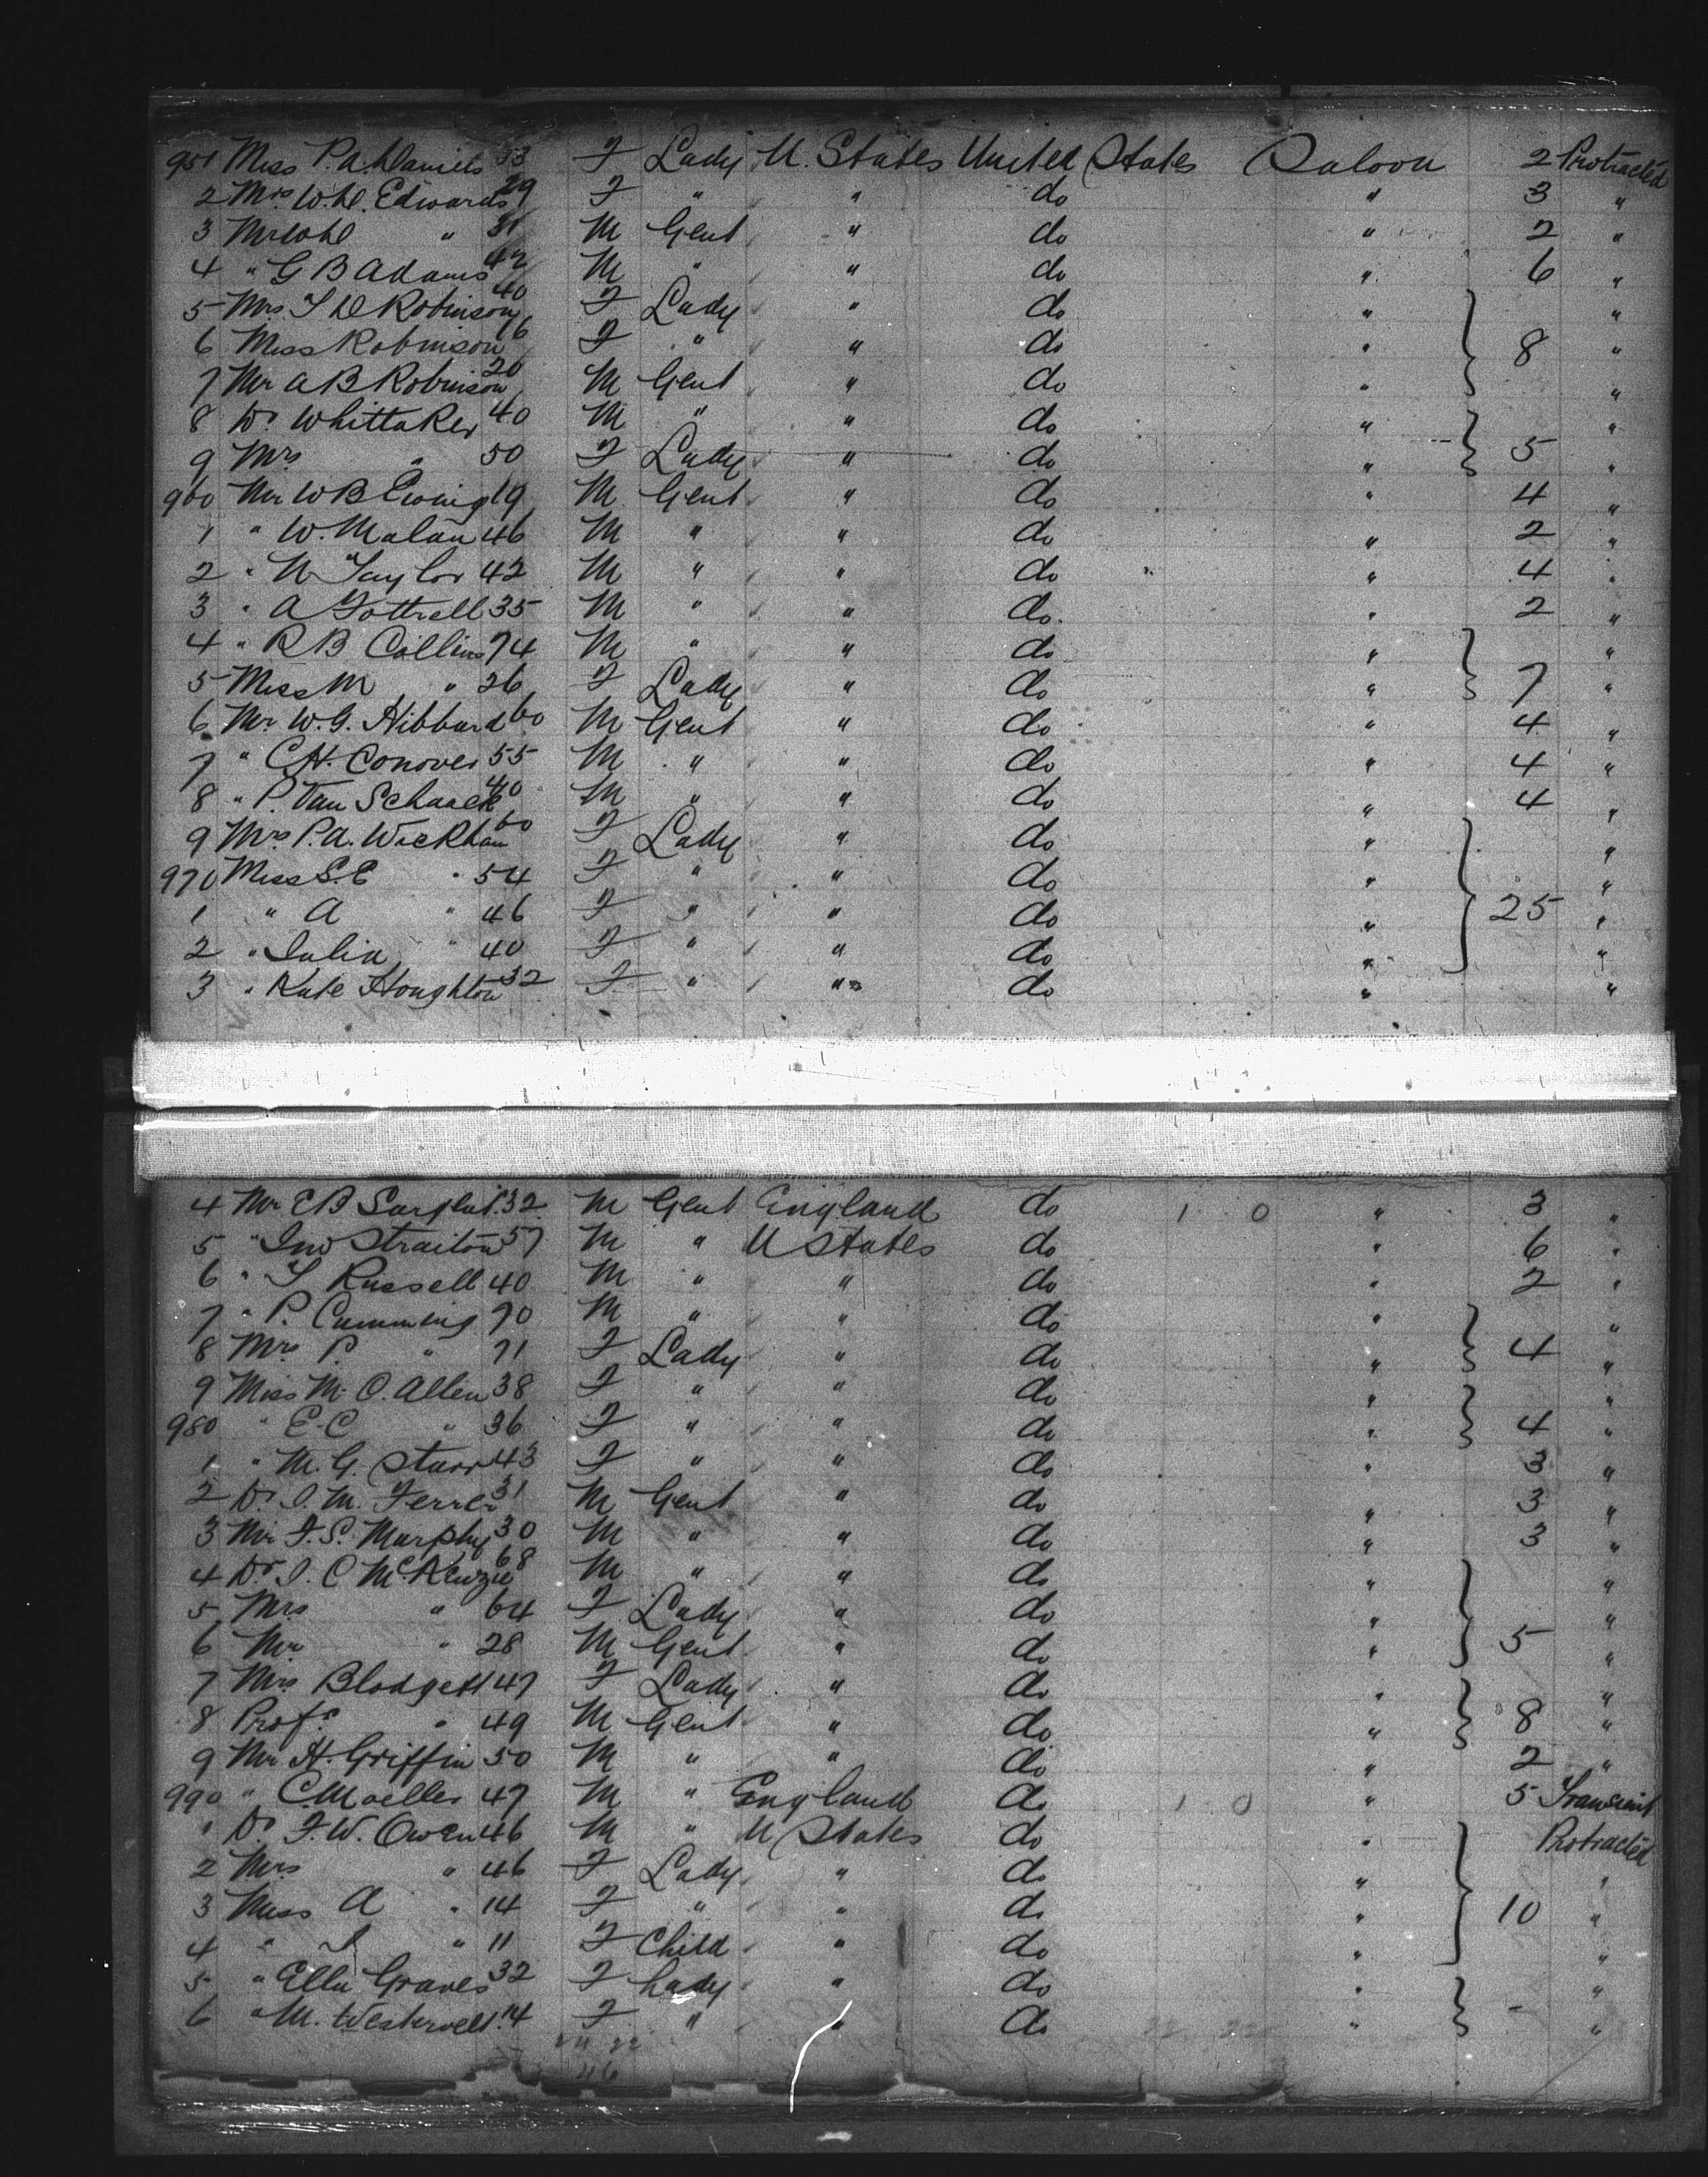 951 Miss P.A. Daniels 53 F Lady U. States United States Saloon 2 Protracted
2 Mrs W.H. Edwards 29 F " " do " 3 "
3 Mr W H " 31 M Gent " do " 2 "
4 " G B Adams 42 M " " do " 6 "
5 Mrs T D Robinson 40 F Lady " do " "
6 Miss Robinson 16 F " " do " 8 "
7 Mr A B Robinson 20 M Gent " do " "
8 Dr Whittaker 40 M " " do " "
9 Mrs " 50 F Lady " do " 5 "
960 Mr W B Ewing 19 M Gent " do " 4 "
1 " W. Malan 46 M " " do " 2 "
2 " N Taylor 42 M " " do " 4 "
3 " A Fottrell 35 M " " do " 2 "
4 " R B Collins 74 M " " do " "
5 Miss M " 26 F Lady " do " 7 "
6 Mr W.G. Hibbard 60 M Gent " do " 4 "
7 " C H. Conover 55 M " " do " 4 "
8 " P. Van Schaack 40 M " " do " 4 "
9 Mrs P.A. Wickham 60 F Lady " do " "
970 Miss S.E " 54 F " " do " "
1 " A " 46 F " " do " 25 "
2 " Julia " 40 F " " do " "
3 " Kate Houghton 32 F " " do " "
4 Mr E B Sargent 32 M Gent England do 1 0 " 3 "
5 " Jno Straiton 57 M " U States do " 6 "
6 " T Russell 40 M " " do " 2 "
7 " P. Cumming 70 M " " do " "
8 Mrs P. " 71 F Lady " do " 4 "
9 Miss M. C. Allen 38 F " " do " "
980 " E.C " 36 F " " do " 4 "
1 " M.G. Starr 43 F " " do " 3 "
2 Dr J. M. 31 M Gent " do " 3 "
3 Mr F.S. Murphy 30 M " " do " 3 "
4 Dr J. C McKenzie 68 M " " do " "
5 Mrs " 64 F Lady " do " "
6 Mr " 28 M Gent " do " 5 "
7 Mrs Blodgett 47 F Lady " do " "
8 Profr " 49 M Gent " do " 8 "
9 Mr H. Griffin 50 M " " do " 2 "
990 " C. Moeller 47 M " England do 1 0 " 5 Transient
1 Dr F.W. Owen 46 M " U States do " Protracted
2 Mrs " 46 F Lady " do " "
3 Miss A " 14 F " " do " 10 "
4 " J " 11 F Child " do " "
5 " Ella Graves 32 F Lady " do " "
6 " M. Westervelt 14 F " " do " - "